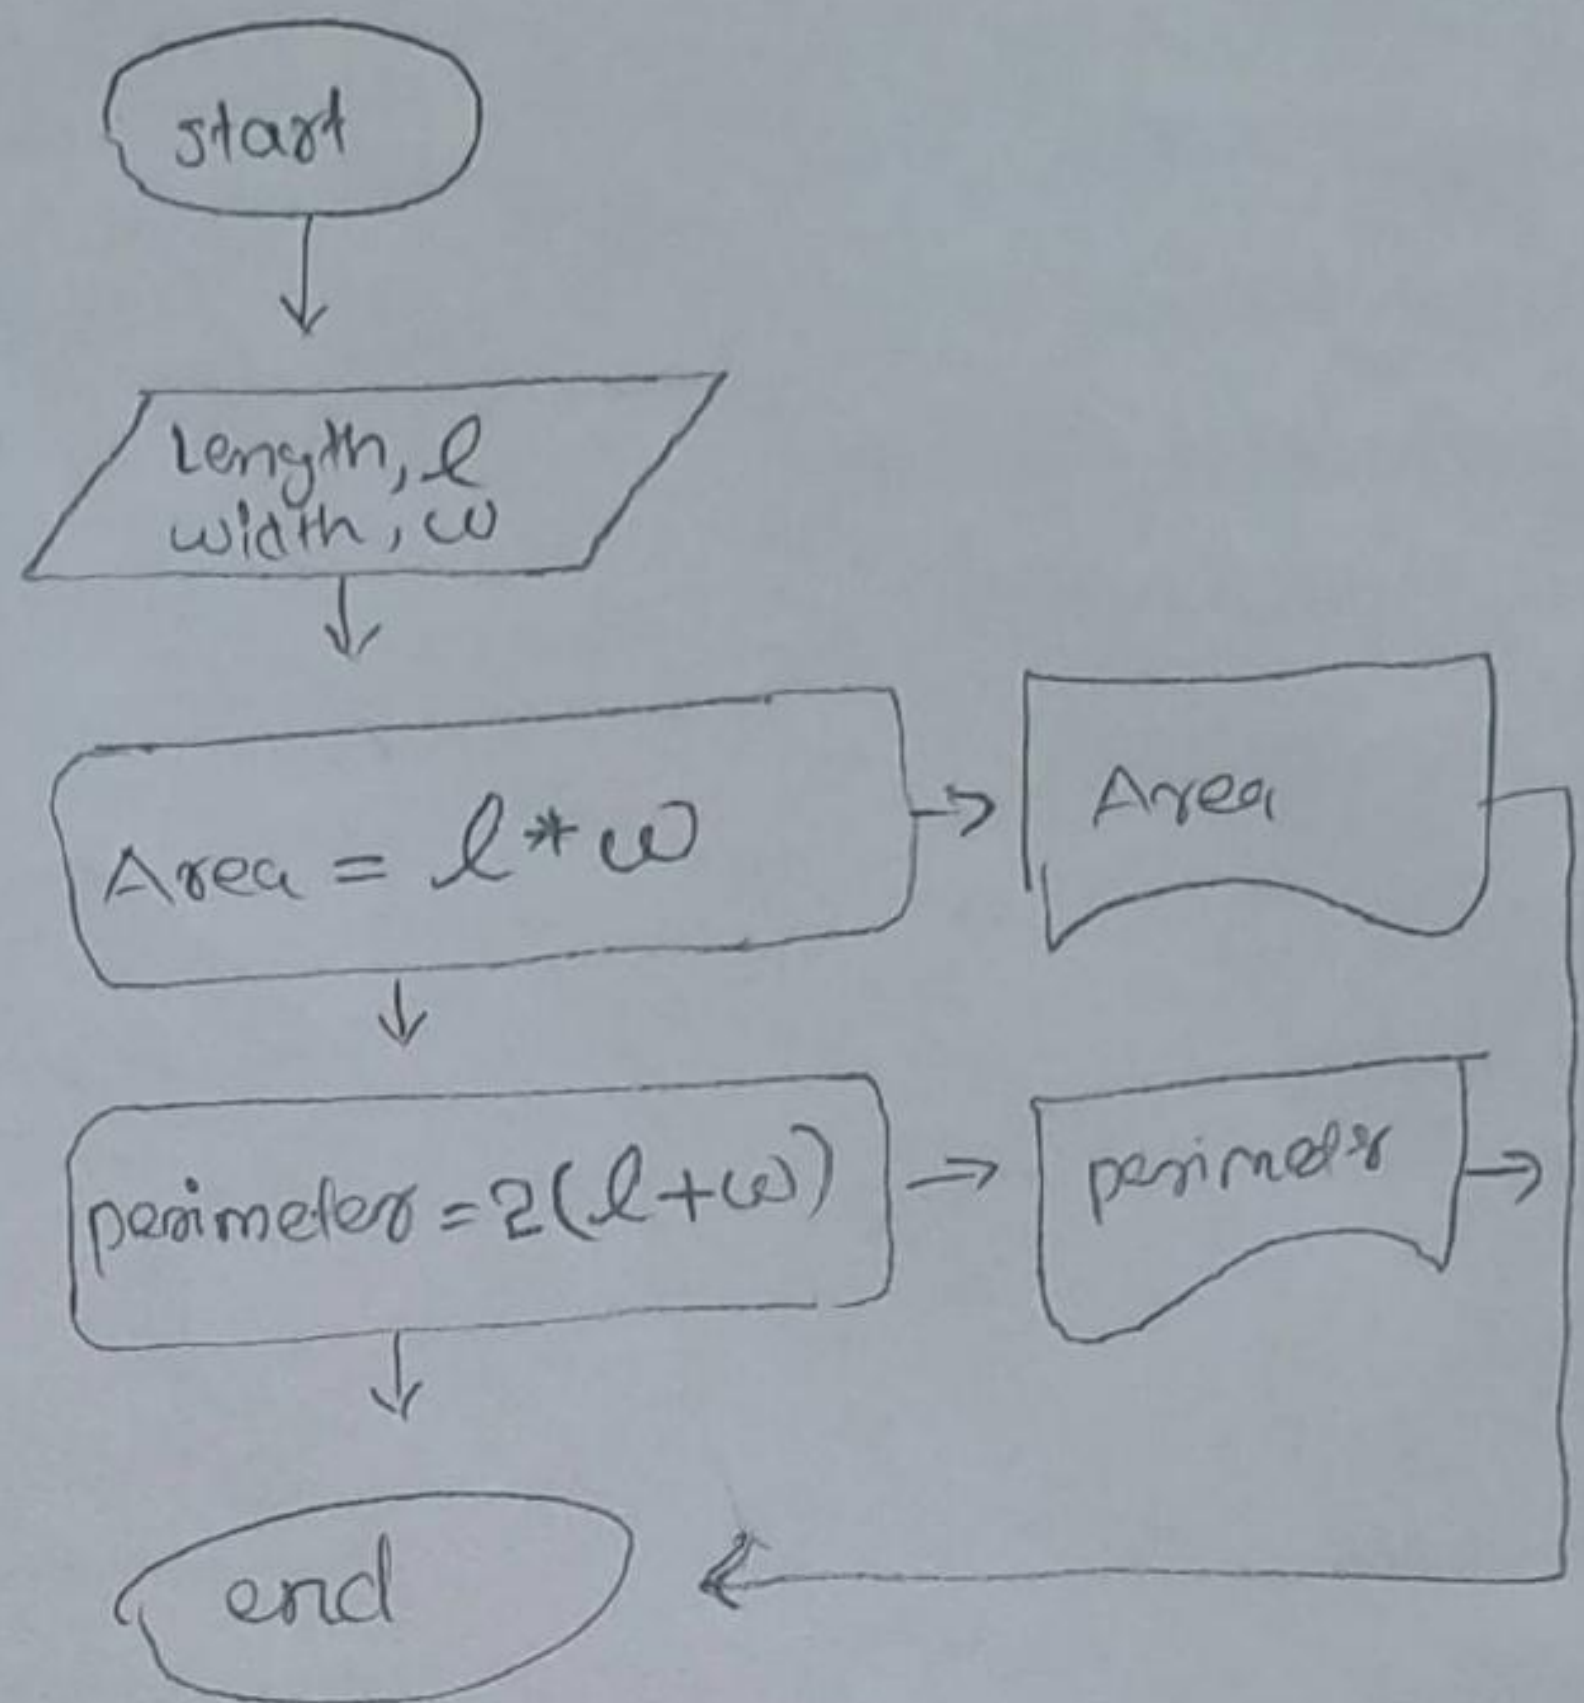 start
Length, l
width, w
Area = l * w
Area
perimeter = 2(l+w)
perimeter
end